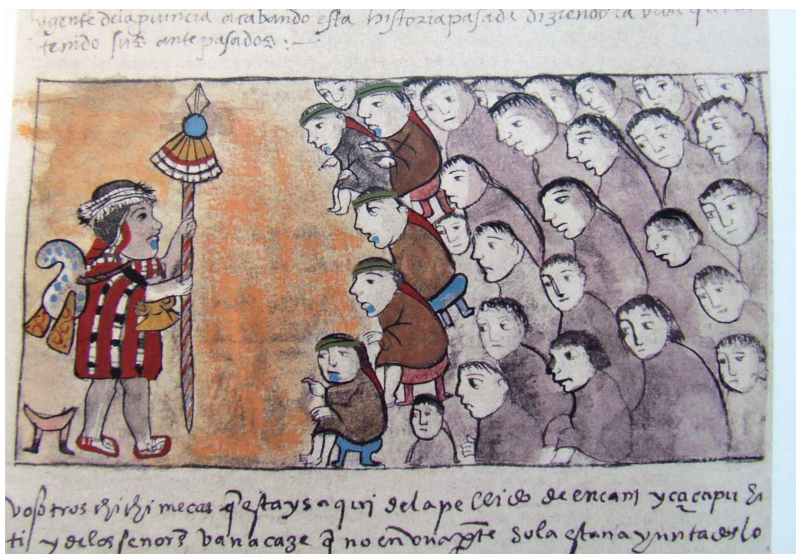 ygente delapuincia acabando esta historia pasada diziendo la vida q
tenido sus antepasados :—
vosotros chichimecas q estays aqui delapellido de eneani y cacapu hi
ti y delos señores vanacaze q no en una pte sola estan ayuntados lo